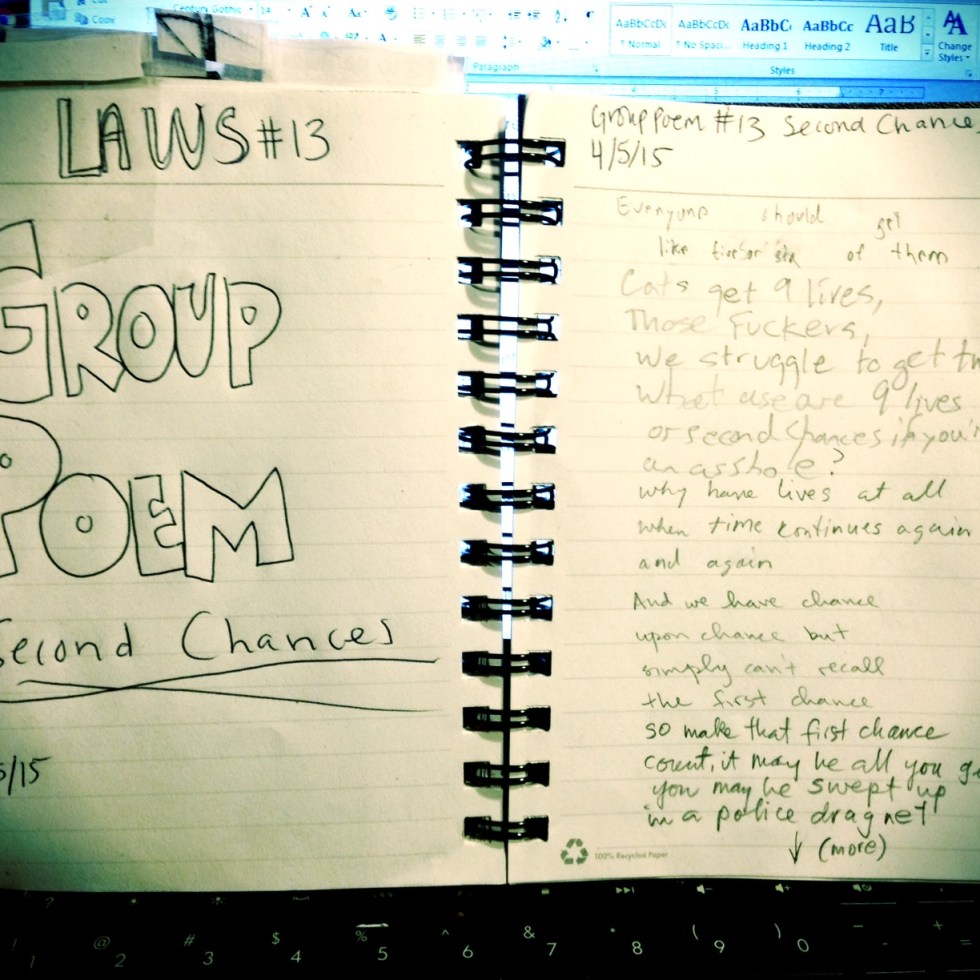 Copy
Century Gothic
14
AaBbCcDc
AaBbCcDc
AaBbC
AaBbCc
AaB
¶ Normal
¶ No Spaci...
Heading 1
Heading 2
Title
Change
Styles
Paragraph
Styles
LAWS #13
GROUP
POEM
Second Chances
5/15
Group Poem #13 Second Chance
4/5/15
Everyone should get
like five or six of them
Cats get 9 lives,
Those Fuckers,
we struggle to get th
What use are 9 lives
or second chances if you'r
an asshole?
why have lives at all
when time continues again
and again
And we have chance
upon chance but
simply can't recall
the first chance
so make that first chance
count, it may be all you ge
you may be swept up
in a police dragnet
↓ (more)
100% Recycled Paper
@ # $ % ^ & * ( ) - +
1 2 3 4 5 6 7 8 9 0 - =